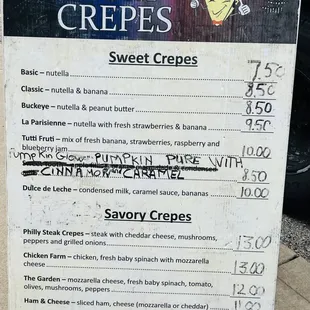 CREPES
Sweet Crepes
Basic – nutella 7.50
Classic – nutella & banana 8.50
Buckeye – nutella & peanut butter 8.50
La Parisienne – nutella with fresh strawberries & banana 9.50
Tutti Fruti – mix of fresh banana, strawberries, raspberry and
blueberry jam 10.00
PUMPKIN PURE WITH
CINNAMON CARAMEL 8.50
Dulce de Leche – condensed milk, caramel sauce, bananas 10.00
Savory Crepes
Philly Steak Crepes – steak with cheddar cheese, mushrooms,
peppers and grilled onions 13.00
Chicken Farm – chicken, fresh baby spinach with mozzarella
cheese 13.00
The Garden – mozzarella cheese, fresh baby spinach, tomato,
olives, mushrooms, peppers 12.00
Ham & Cheese – sliced ham, cheese (mozzarella or cheddar) 11.00